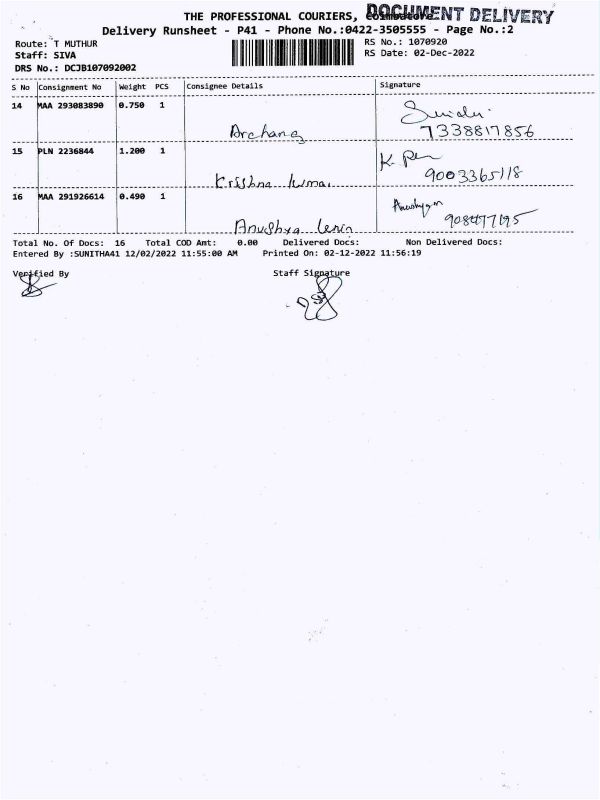 THE PROFESSIONAL COURIERS, Coimbatore
DOCUMENT DELIVERY
Delivery Runsheet - P41 - Phone No.:0422-3505555 - Page No.:2
Route: T MUTHUR
RS No.: 1070920
Staff: SIVA
RS Date: 02-Dec-2022
DRS No.: DCJB107092002
S No Consignment No Weight PCS Consignee Details Signature
14 MAA 293083890 0.750 1
Archana 7338817856
15 PLN 2236844 1.200 1 K.
Krishna Kumar 9003365118
16 MAA 291926614 0.490 1
Anushya
Total No. Of Docs: 16 Total COD Amt: 0.00 Delivered Docs: Non Delivered Docs:
Entered By :SUNITHA41 12/02/2022 11:55:00 AM Printed On: 02-12-2022 11:56:19
Verified By Staff Signature